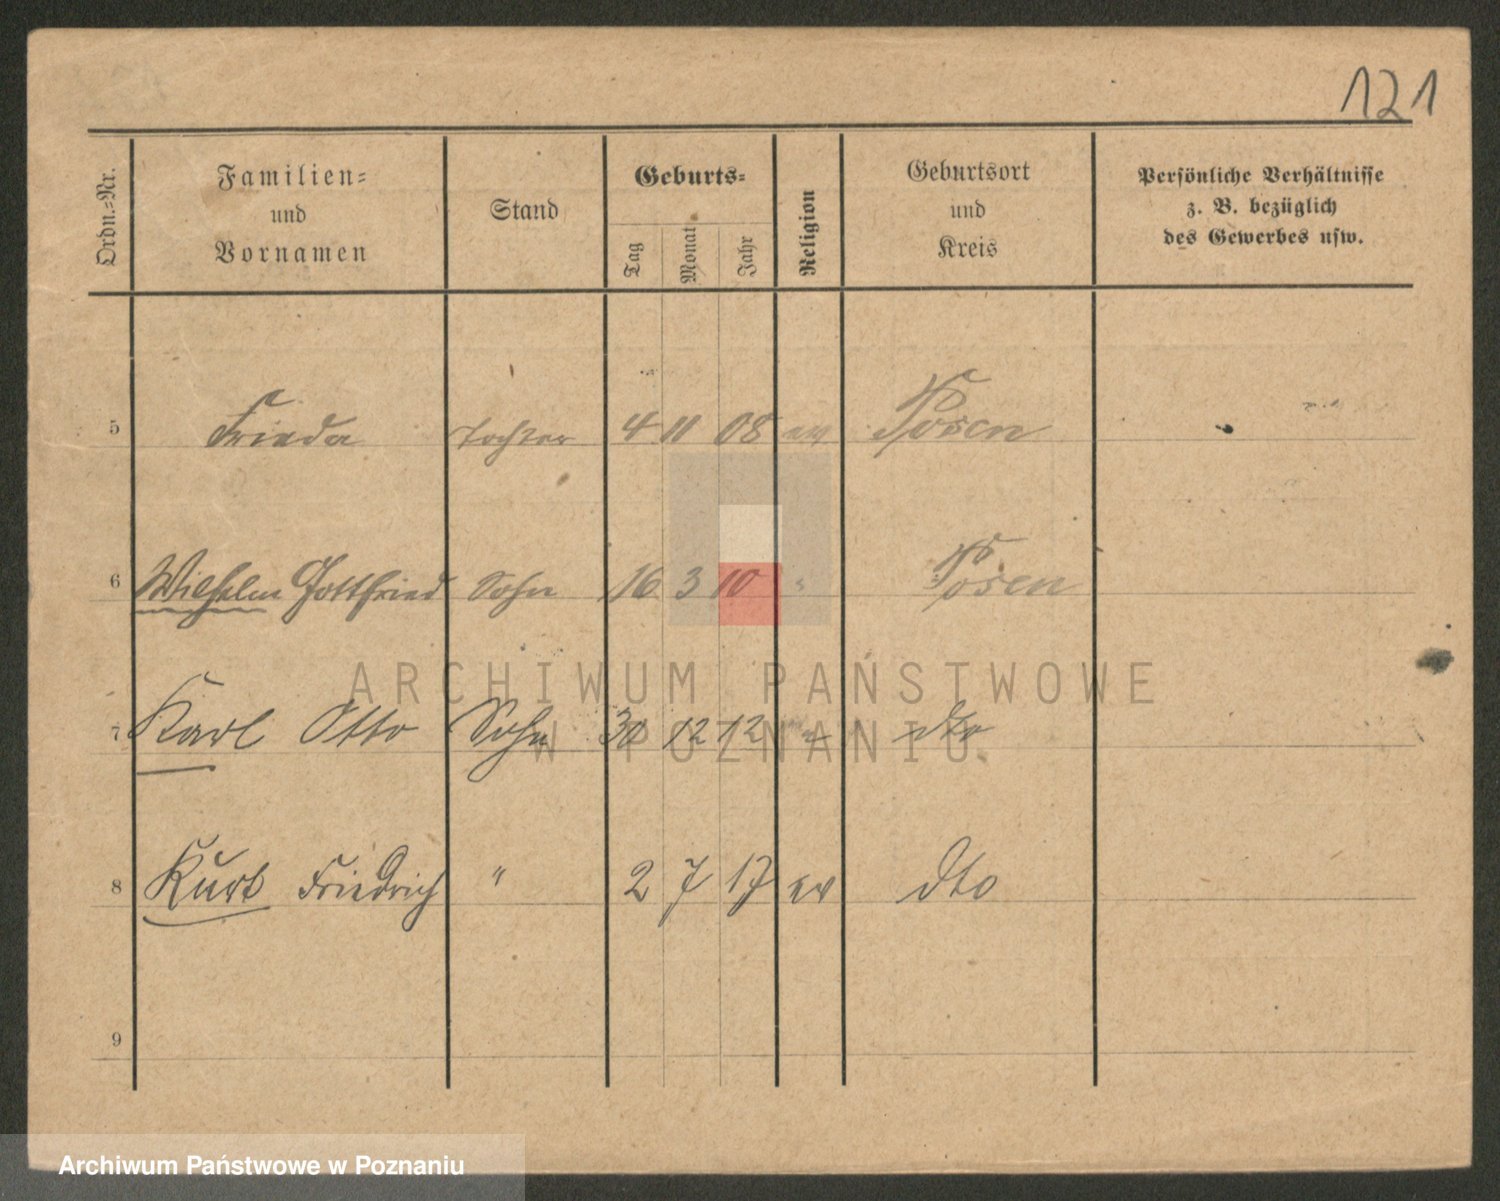 121
Ordn.-Nr.
Familien-
und
Vornamen
Stand
Geburts-
Tag
Monat
Jahr
Religion
Geburtsort
und
Kreis
Persönliche Verhältnisse
z. B. bezüglich
des Gewerbes usw.
5 Frieda Tochter 4 11 08 ev Posen
6 Wilhelm Gottfried Sohn 16 3 10 " Posen
7 Karl Otto Sohn 30 12 12 " dto
8 Kurt Friedrich " 2 7 17 ev dto
9
ARCHIWUM PAŃSTWOWE
W POZNANIU
Archiwum Państwowe w Poznaniu